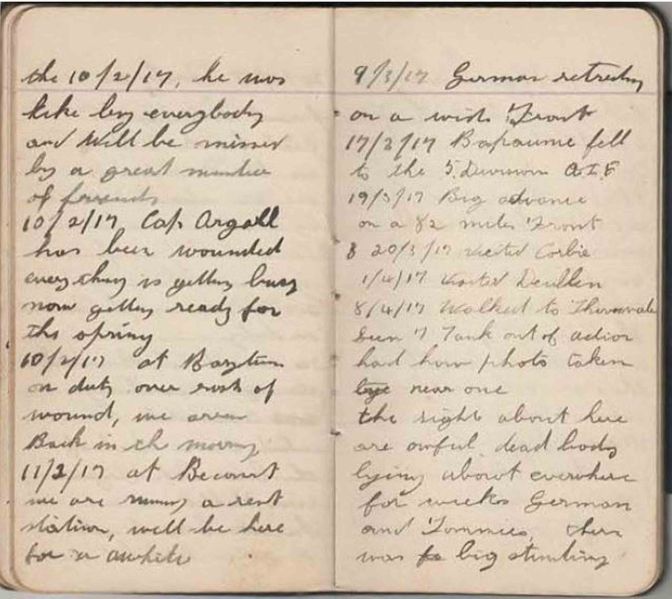 the 10/2/17, he was
like by everybody
and Will be missed
by a great number
of friends
10/2/17 Cap Argall
has been wounded
everything is getting busy
now getting ready for
the spring
10/2/17 at
on duty over rush of
wound, we
Back in morning
11/2/17 at Becourt
we are a rest
station, will be here
for a awhile
9/3/17 German
on a wide Front
17/2/17 Bapaume fell
to the 5. Division A.I.F
19/3/17 Big advance
on a 82 miles Front
20/3/17 visited Corbie
1/4/17 visited
8/4/17 Walked to
seen 7 Tank out of action
had photo taken
near one
the sight about here
are awful dead body
lying about everwhere
for weeks German
and Tommies,
was big